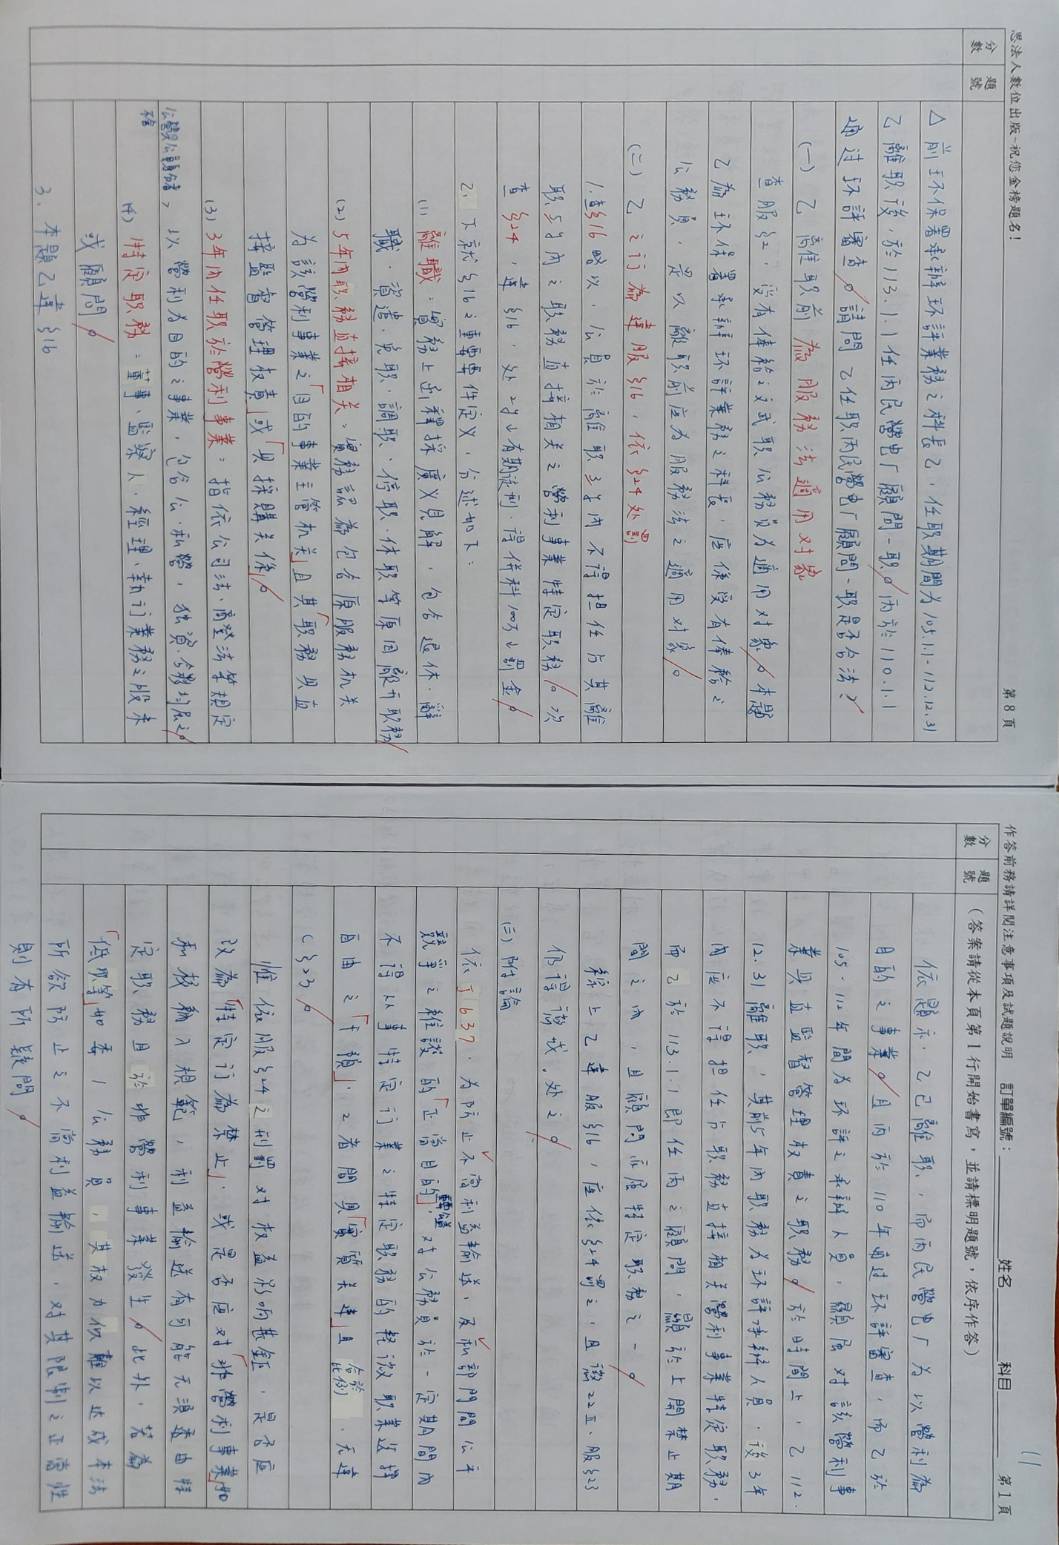 思法人數位出版~祝您金榜題名!
第8頁
分數
題號
△前環保署承辦環評業務之科長乙,任職期間為105.1.1-112.12.31
乙離職後,於113.1.1任丙民營電厂顧問一職。丙於110.1.1
通過环評審查。請問乙任職丙民營電厂顧問一職是否合法?
(一)乙離職前為服務法適用對象
查服§2,受有俸給之文武職公務員為適用対象。本題
乙為环保署承辦环評業務之科長,应係受有俸給之
公務員,是以離職前应為服務法之適用对象。
(二)乙之行為違服§16,依§24处罰
1.查§16略以,公員於離職3y內不得担任与其離
職5y內之職務直接相关之營利事業特定職務。次
查§24,違§16,处2y↓有期徒刑,得併科100万↓罰金。
2.下就§16之重要要件定义,分述如下:
(1)離職:實務上函釋採廣义見解,包含退休、辭
職、資遣、免職、調職、停職、休職等原因離開職務
(2)5年內職務直接相关:實務認為包含原服務机关
為該營利事業之「目的事業主管机关」且其職務與直
接監督管理权責」或「具採購关係」。
(3)3年內任職於營利事業:指依公司法、商登法等規定
,以營利為目的之事業,包含公、私營,独資、合夥均屬之。
(4)特定職務:董事、監察人、經理、執行業務之股東
或顧問。
3、本題乙違§16
作答前務請詳閱注意事項及試題說明 訂單編號: 姓名 科目 第1頁
11
分數
題號
(答案請從本頁第1行開始書寫,並請標明題號,依序作答)
依題示,乙已離職,而丙民營電厂為以營利為
目的之事業。且丙於110年通過环評審查,而乙於
105-112年間為环評之承辦人員,顯屬对該營利事
業具直監督管理权責之職務。於時間上,乙112.
12.31離職,其前5年內職務為环評承辦人員,該3年
內应不得担任与職務直接相关營利事業特定職務,
而乙於113.1.1即任丙之顧問,顯於上開禁止期
間之內,且顧問亦屬特定職務之一。
綜上乙違服§16,应依§24罰之,且徵22五、服§23
仍得議戒、处之。
(三)附論
依J637,為防止不當利益輸送,及私部門間公平
競爭之維護的「正當目的」,对公務員於一定期間內
不得从事特定行業之特定職務的輕微職業选擇
自由之「干預」,2者間具「實質关連」且合於比例,无違
C§23。
惟依服§24之刑罰对权益影响甚鉅,是否应
改為「特定行為禁止」,或是否应对「非營利事業」如
私校納入規範,利益輸送有可能无須委由特
定職務且於非營利事業發生。此外,若為
「低職等」如委1公務員,其权力似難以达成本法
所欲防止之不當利益輸送,对其限制之正當性
則有所疑問。